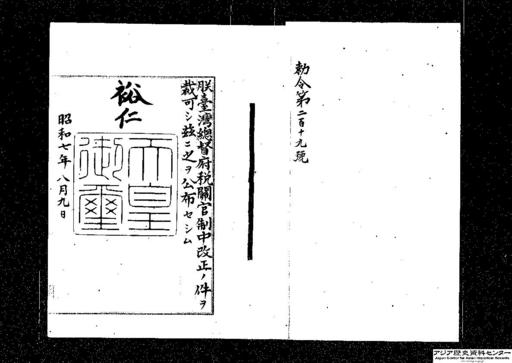 勅令第二百十九號
朕臺灣總督府税關官制中改正ノ件ヲ
裁可シ茲ニ之ヲ公布セシム
裕仁
天皇
御璽
昭和七年八月九日
アジア歴史資料センター
Japan Center for Asian Historical Records